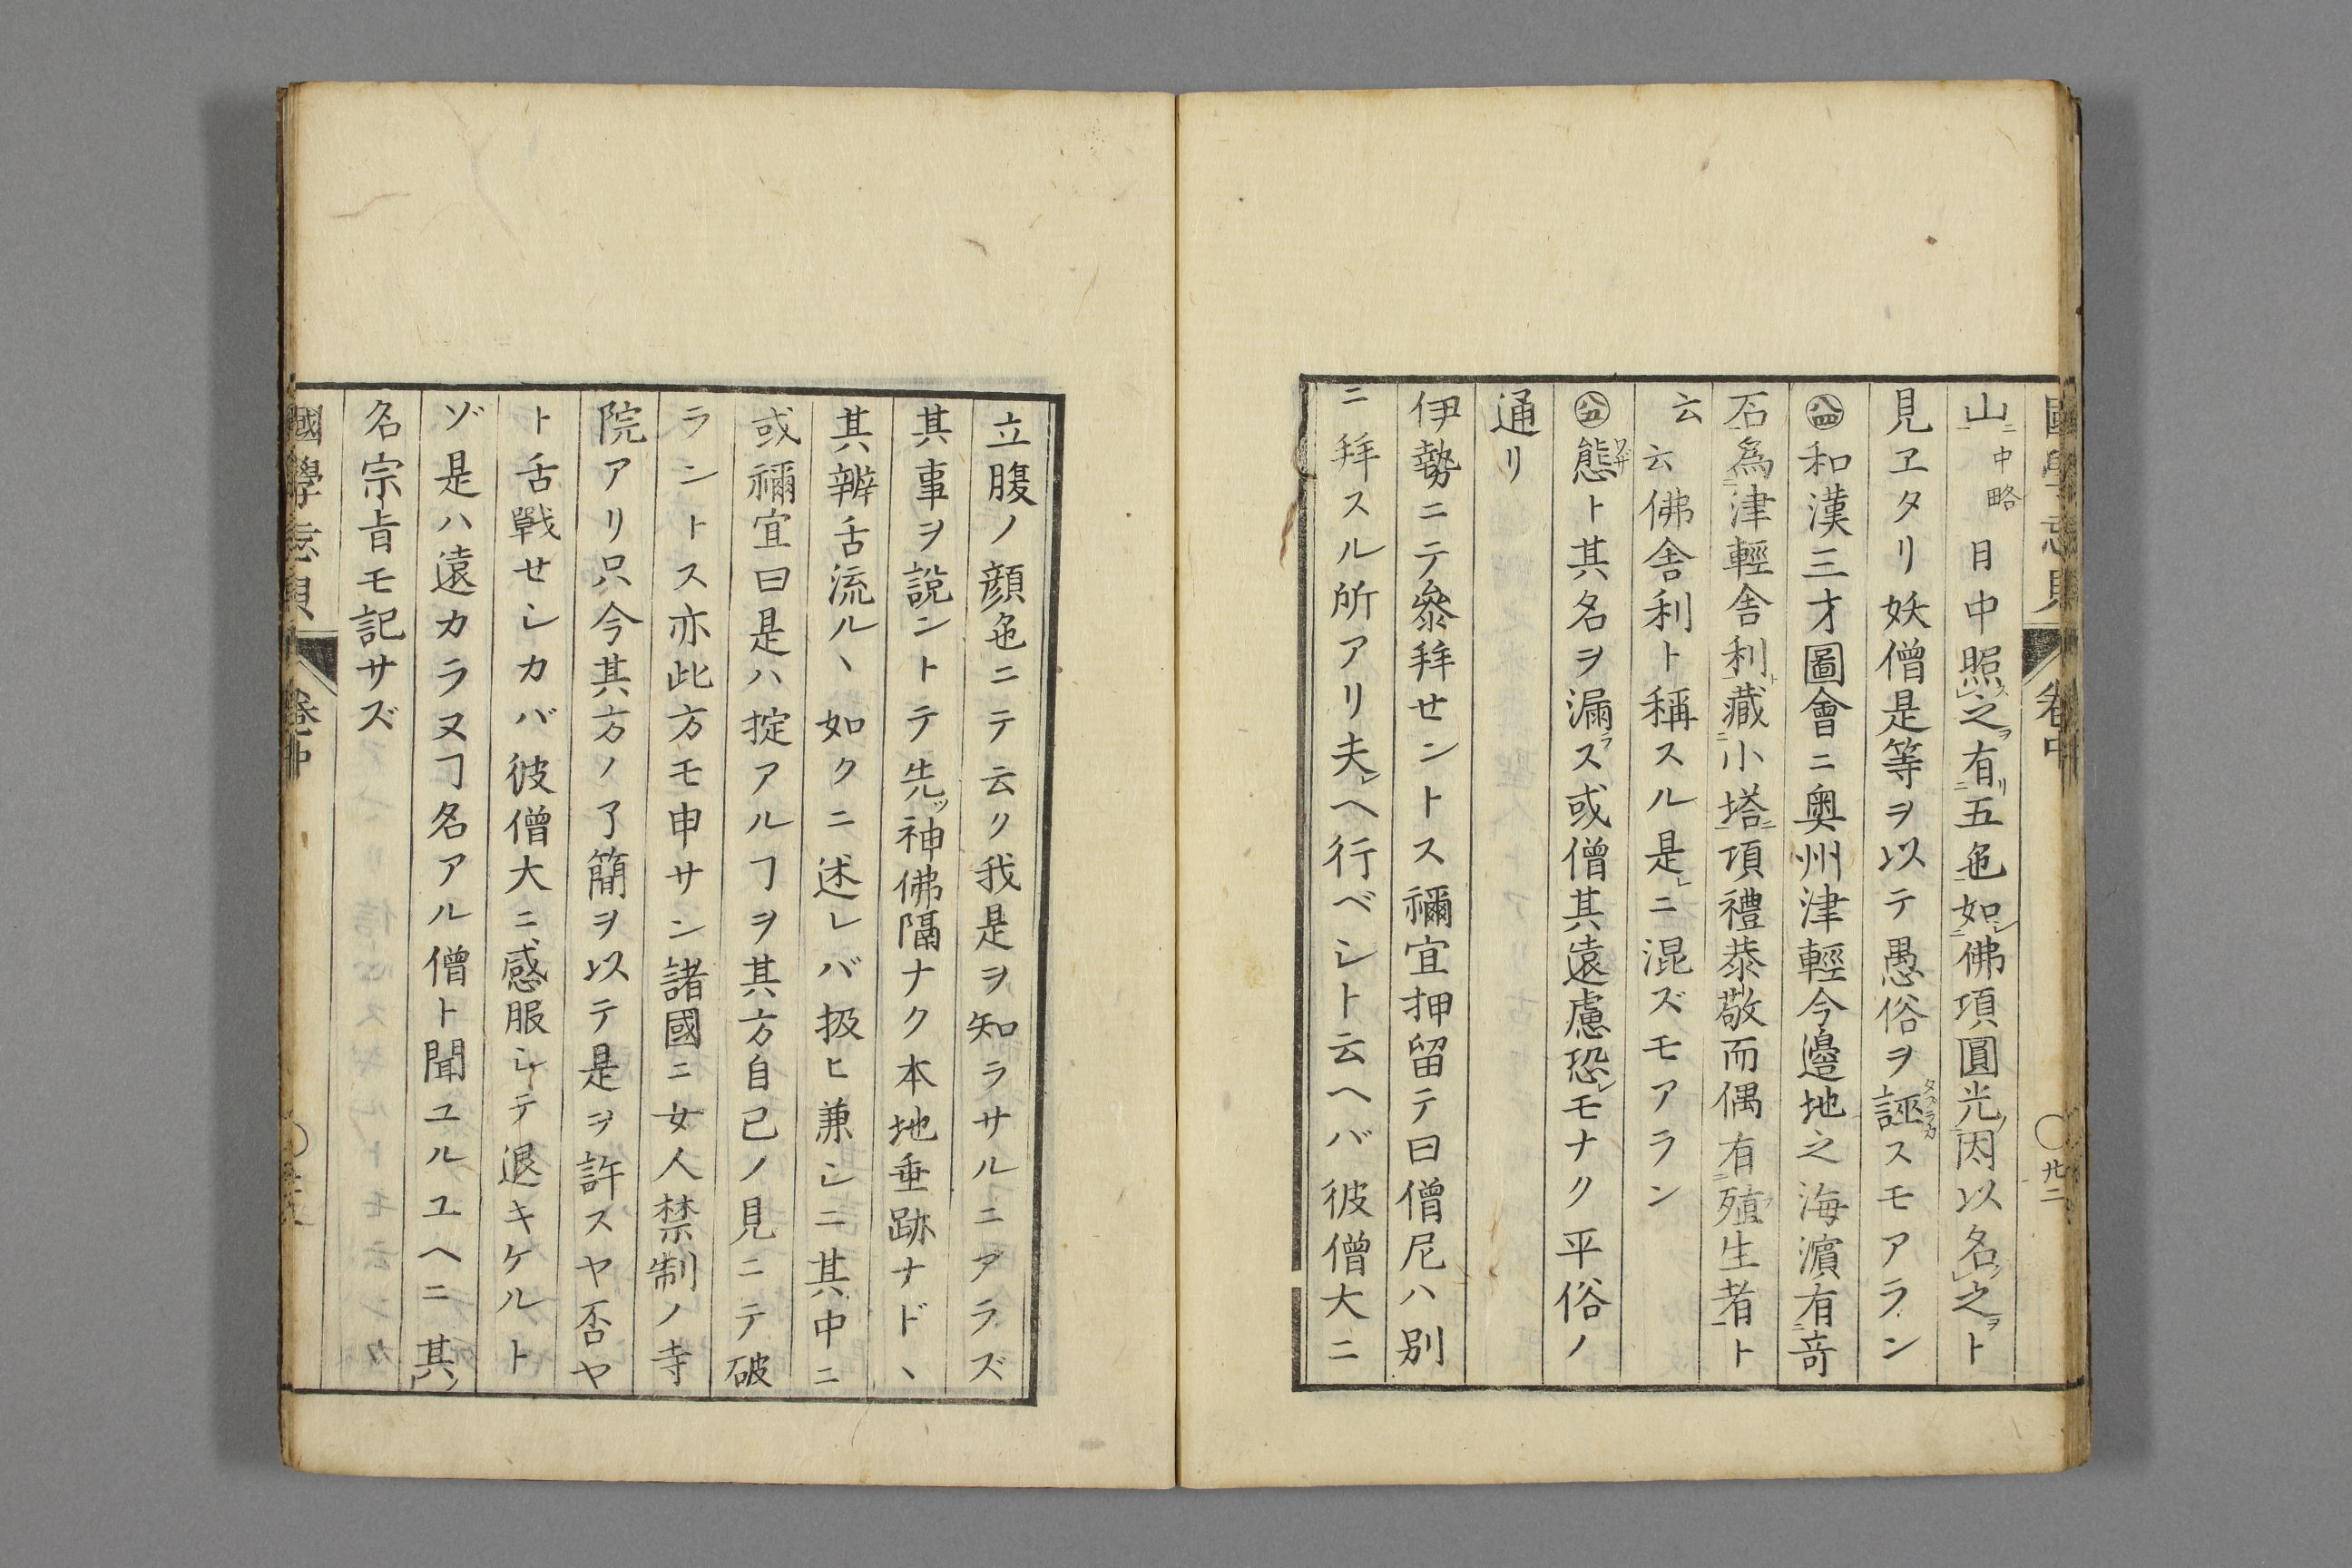 山中略日中照之有五色如佛項圓光因以名之ト
見ヱタリ妖僧是等ヲ以テ愚俗ヲ誣スモアラン
㊇四和漢三才圖會ニ奥州津輕今邉地之海濵有竒
石為津輕舎利藏小塔項禮恭敬而偶有殖生者ト
云云佛舎利ト稱スル是ニ混ズモアラン
㊇五態ト其名ヲ漏ス或僧其遠慮恐レモナク平俗ノ
通リ
伊勢ニテ叅拜せントス禰宜押留テ曰僧尼ハ別
ニ拜スル所アリ夫レヘ行ベシト云ヘバ彼僧大ニ
立腹ノ顔色ニテ云ク我是ヲ知ラサルニアラズ
其事ヲ說ントテ先ッ神佛隔ナク本地垂跡ナド丶
其辨舌流ル丶如クニ述レバ扱ヒ兼シニ其中ニ
或禰宜曰是ハ掟アルヿヲ其方自己ノ見ニテ破
ラントス亦此方モ申サン諸國ニ女人禁制ノ寺
院アリ只今其方ノ了簡ヲ以テ是ヲ許スヤ否ヤ
ト舌戰せシカバ彼僧大ニ感服シテ退キケルト
ゾ是ハ遠カラヌヿ名アル僧ト聞ユルユヘニ其ノ
名宗旨モ記サズ